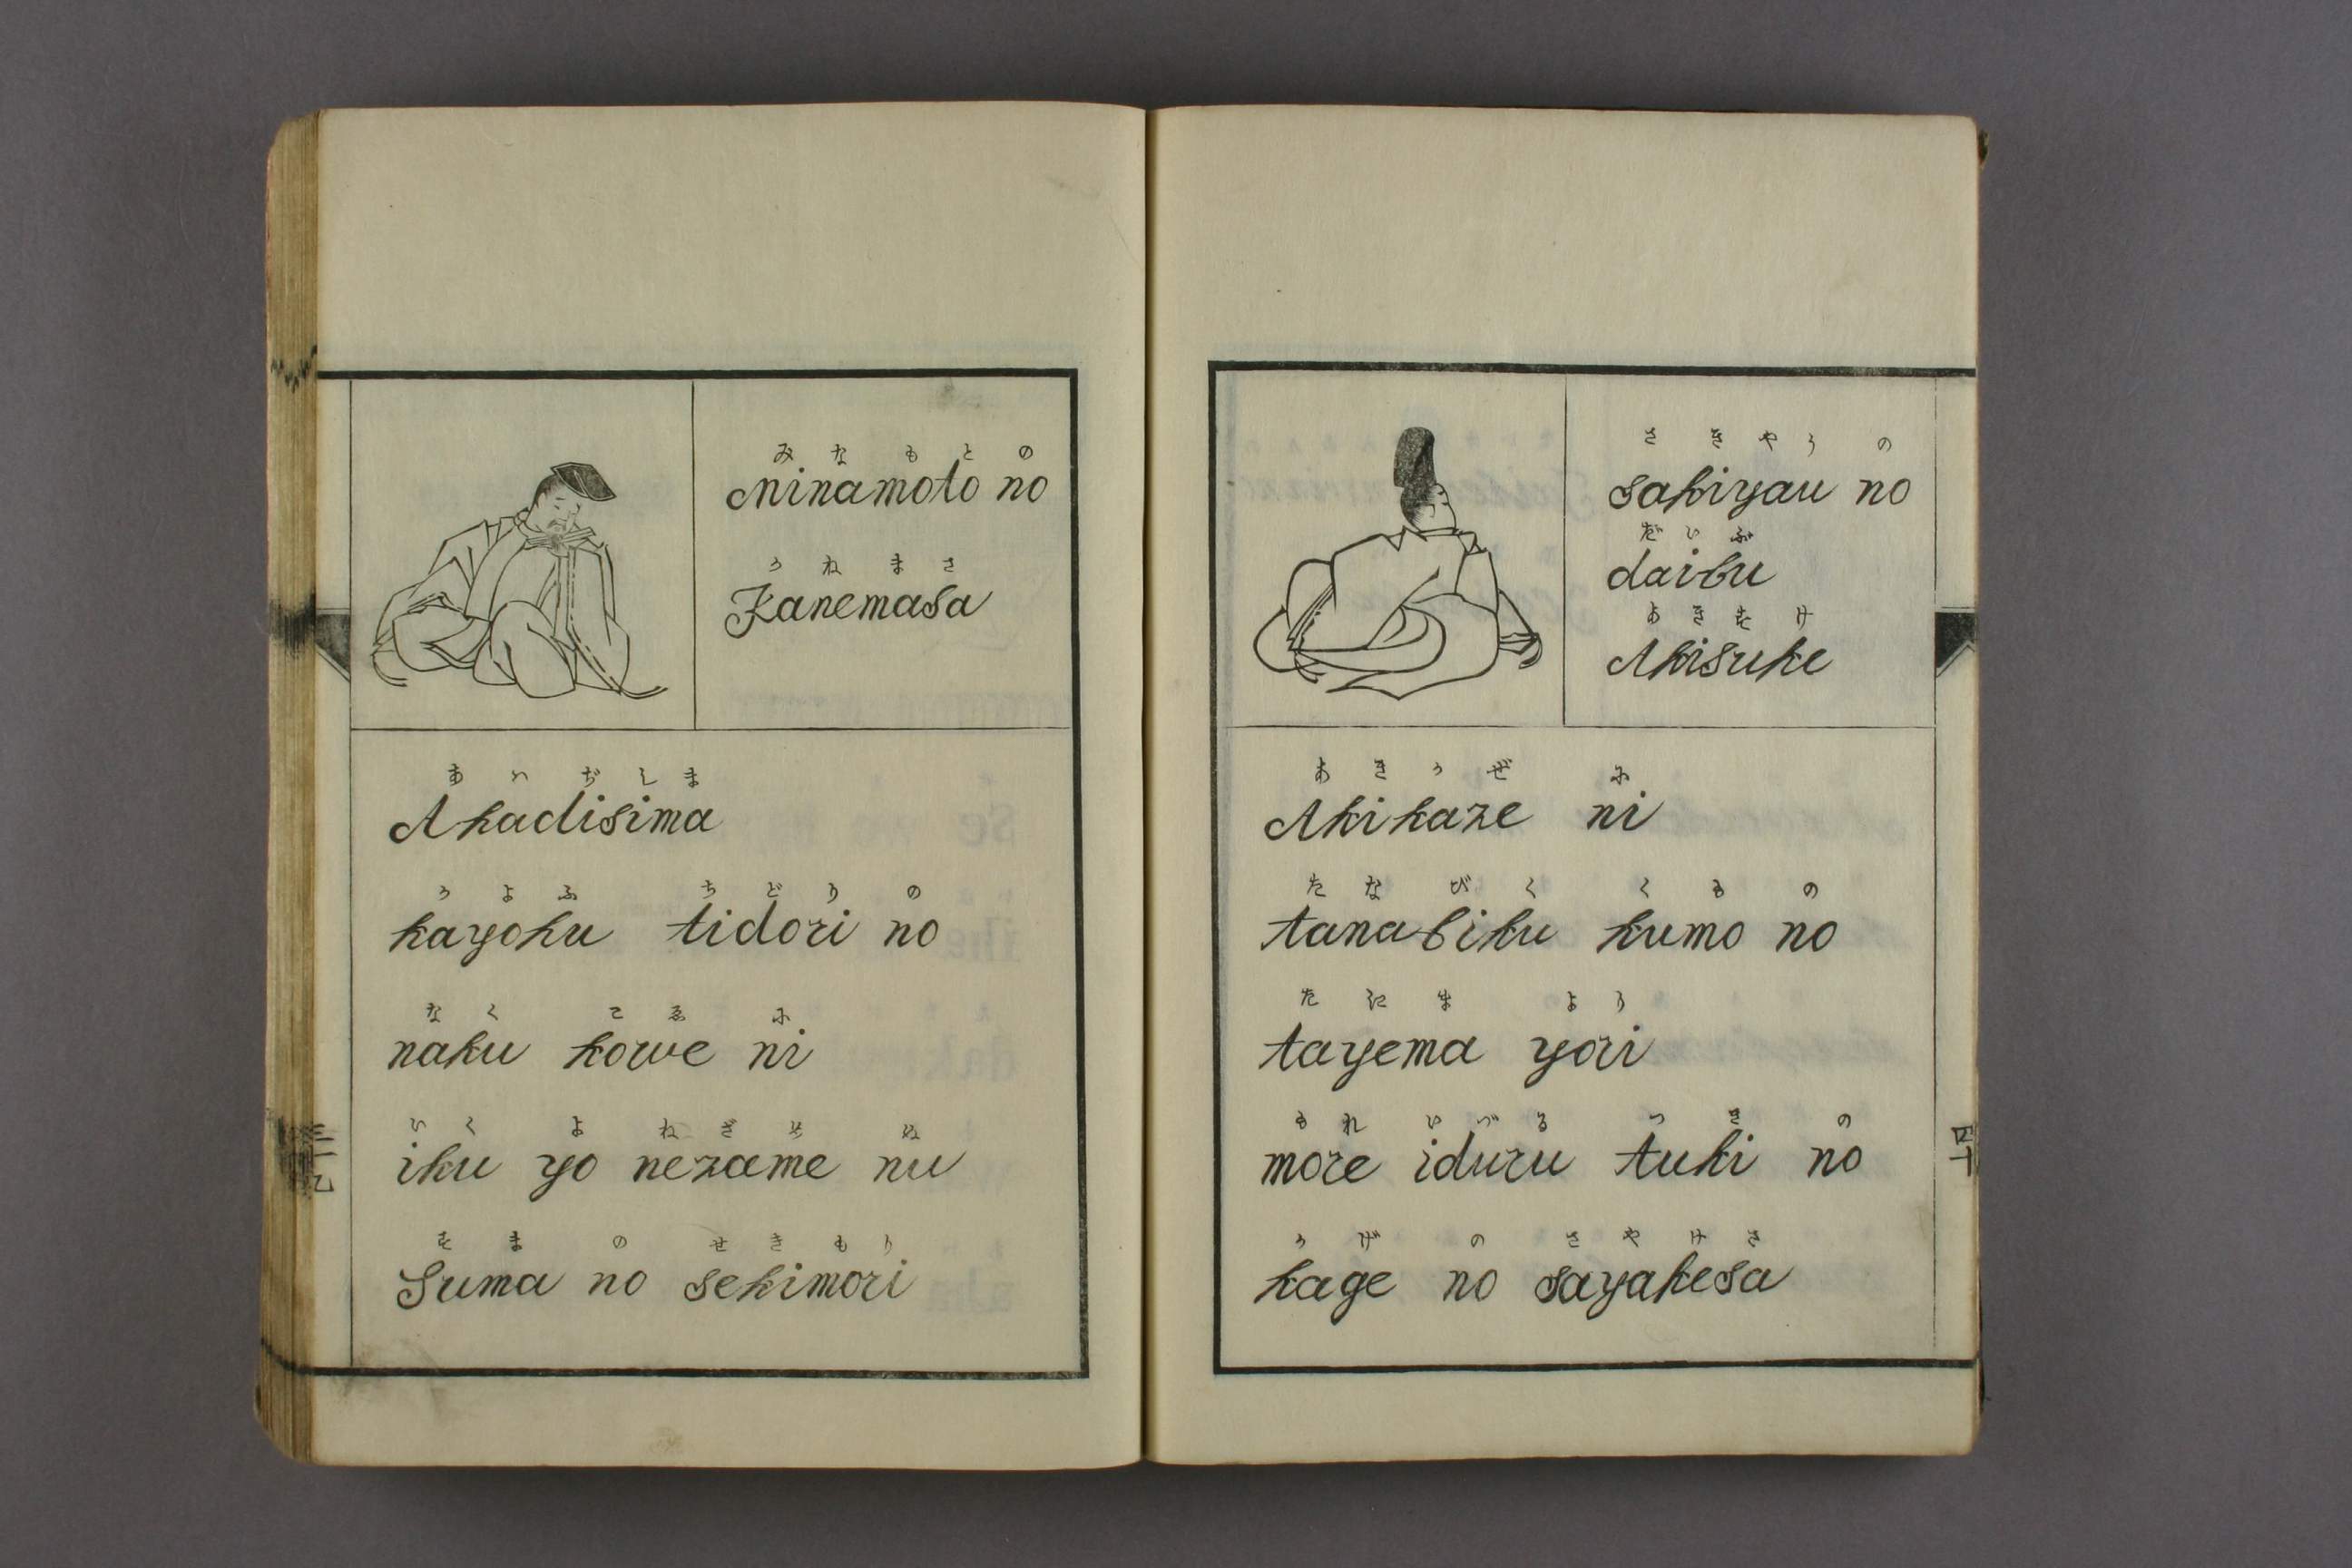 みなもとの
Minamoto no
かねまさ
Kanemasa
あはぢしま
Ahadisima
かよふ ちどりの
kayohu tidori no
なく こゑ に
naku kowe ni
いく よ ねざめ ぬ
iku yo nezame nu
すま の せきもり
Suma no sekimori
さきやう の
sakiyau no
だいぶ
daibu
あきすけ
Akisuke
あきかぜ に
Akikaze ni
たなびく くも の
tanabiku kumo no
たえま より
tayema yori
もれ いづる つき の
more iduru tuki no
かげ の さやけさ
kage no sayakesa
四十